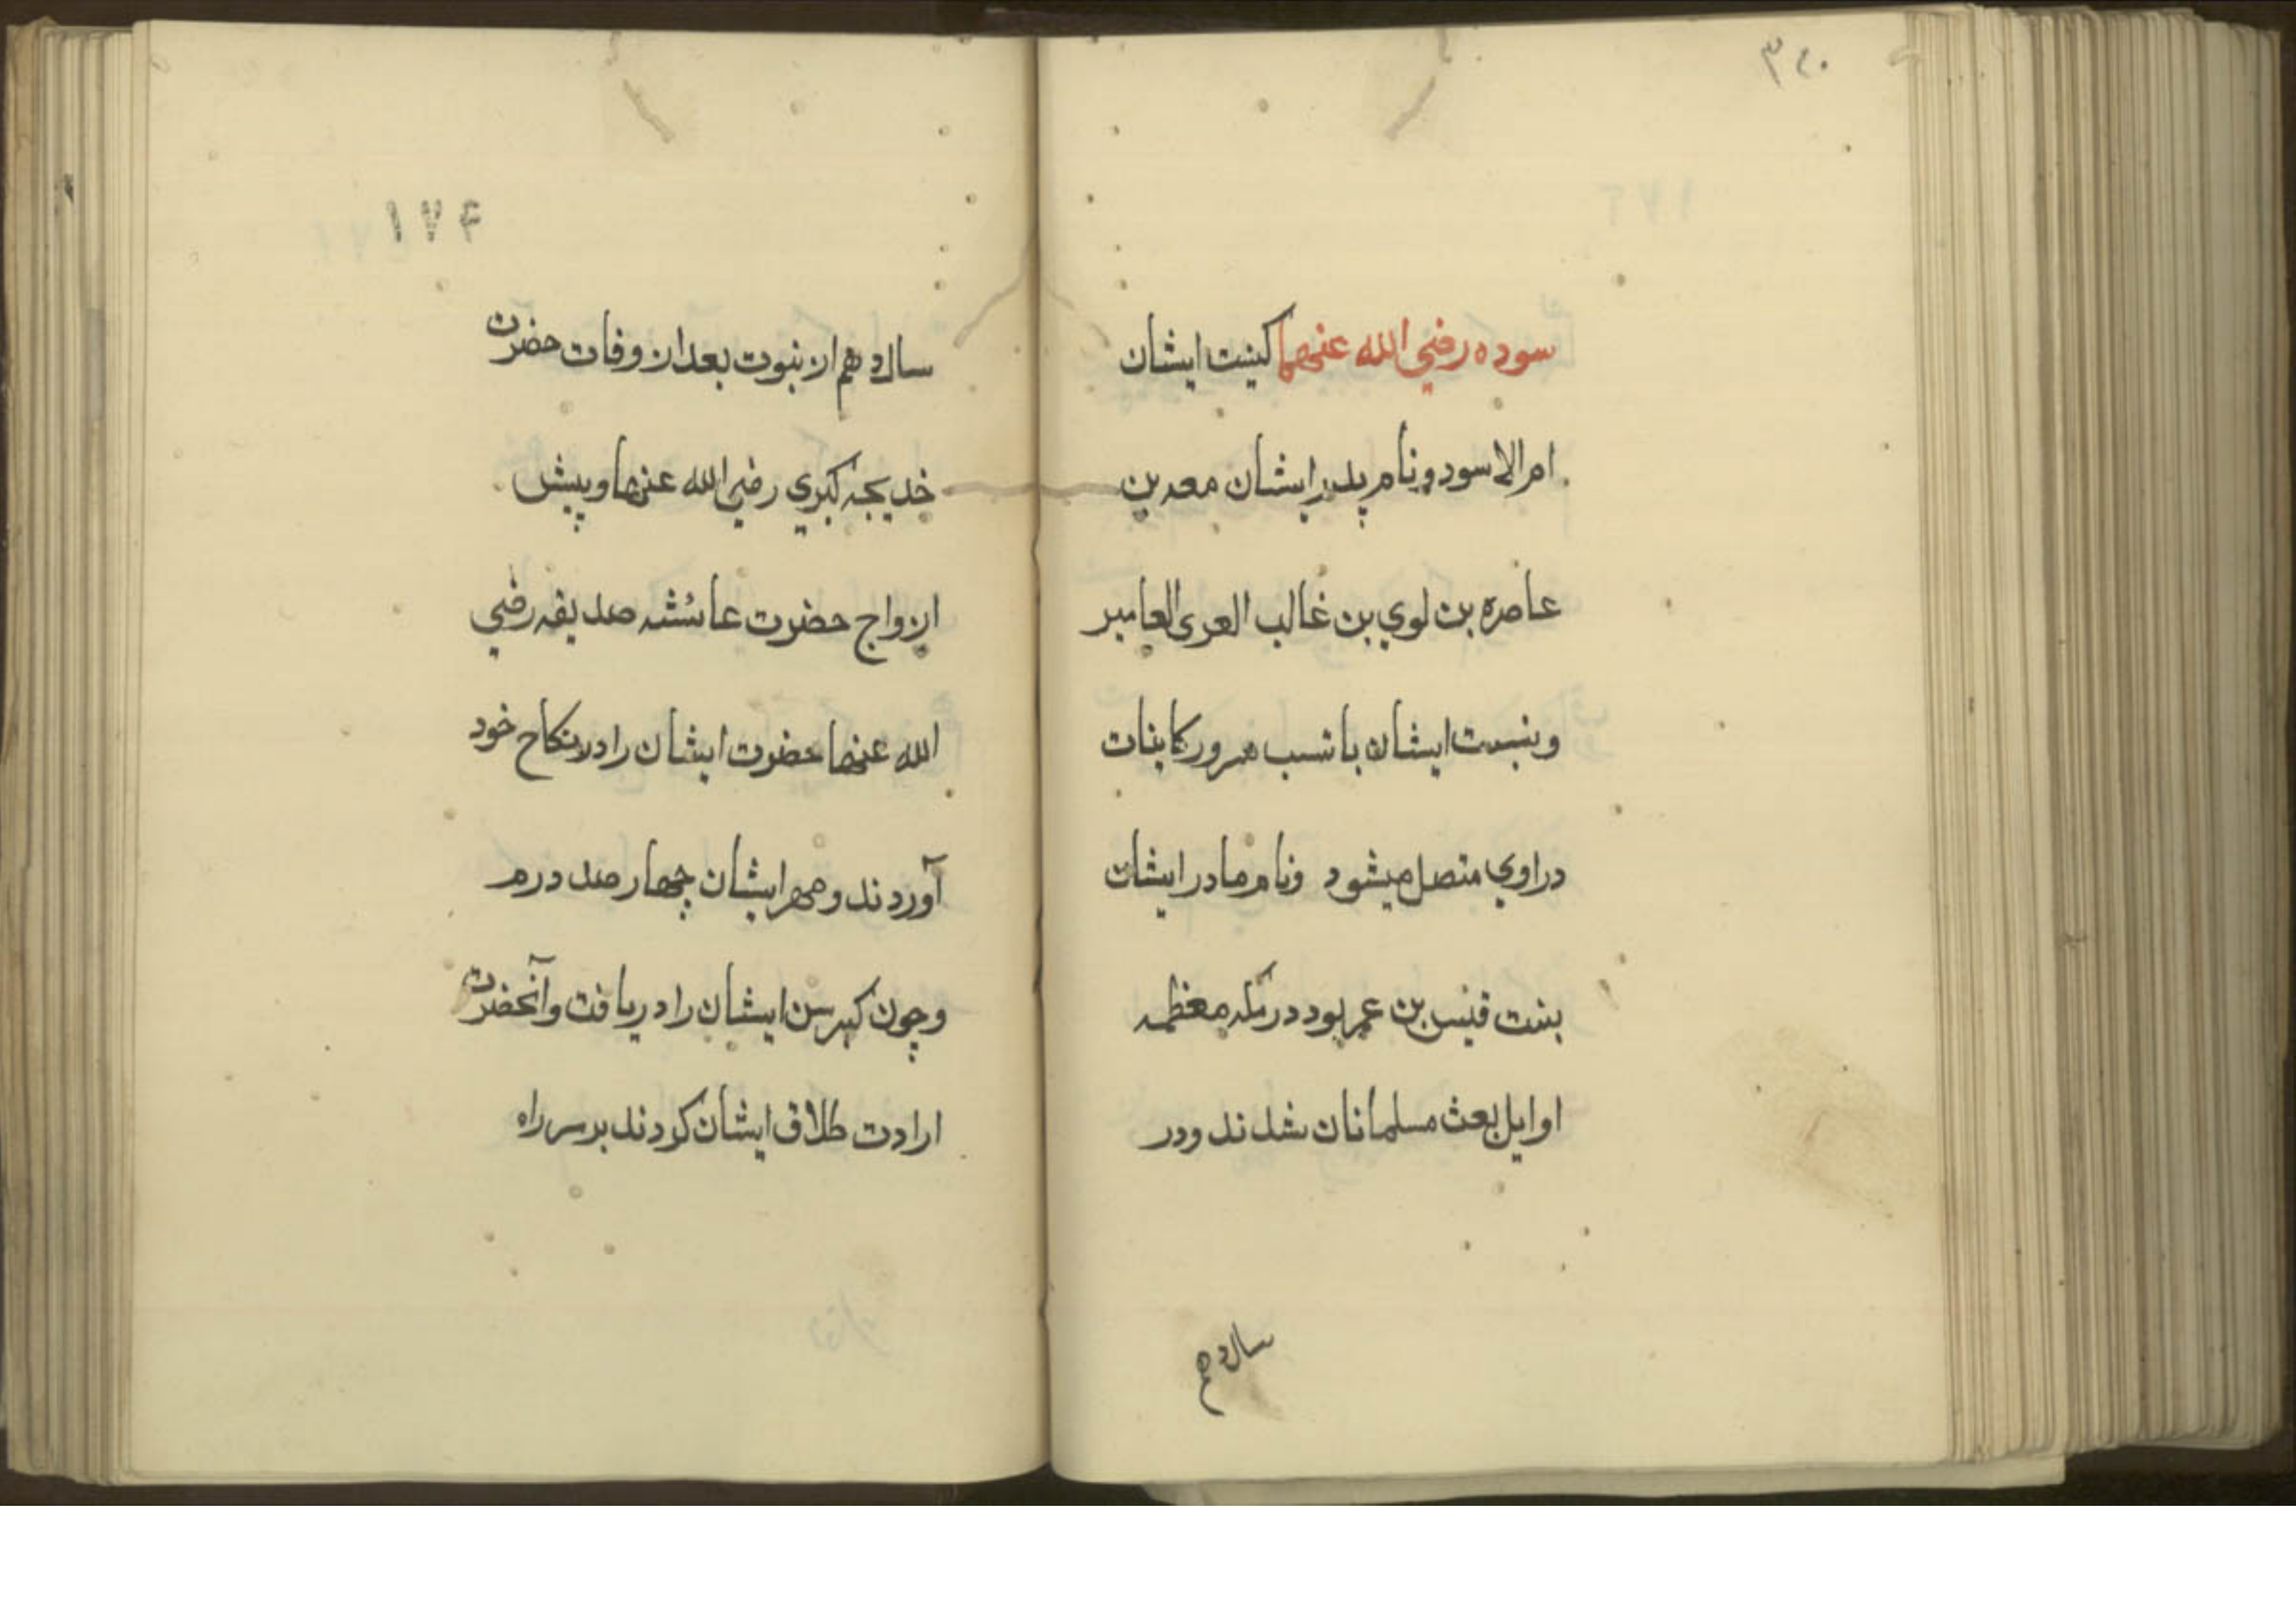 سوده رضي الله عنهما کینت ایشان
ام الاسود و نام پدر ایشان معه بن
عامره بن لوي بن غالب العری العامیر
و نسبت ایشان با نسب سرور کاینات
در اوي متصل میشود و نام مادر ایشان
بنت قیس بن عمر بود در مکه معظمه
اوایل بعث مسلمانان شدند و در
سال دهم
۱۷۴
سال دهم از نبوت بعد از وفات حضرت
خدیجه کبري رضي الله عنها و پیش
ازواج حضرت عائشه صدیقه رضي
الله عنها حضرت ایشان را در نکاح خود
آوردند و مهر ایشان چهار صد درم
و چون کبر سن ایشان را دریافت و آنحضرت
ارادت طلاق ایشان کردند بر سر راه